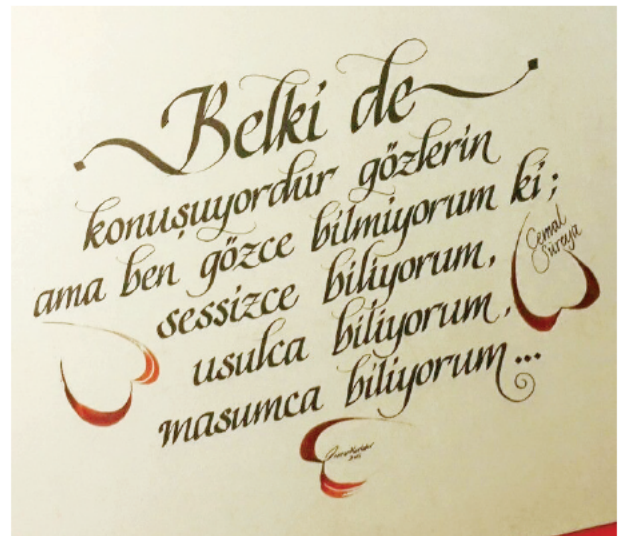 Belki de
konuşuyordur gözlerin
ama ben gözce bilmiyorum ki;
sessizce biliyorum,
usulca biliyorum,
masumca biliyorum...
Cemal
Süreya